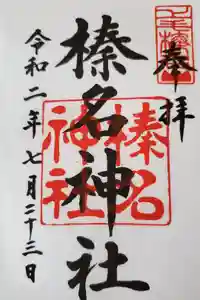 奉拝
榛名神社
榛名
神社
令和二年七月二十三日